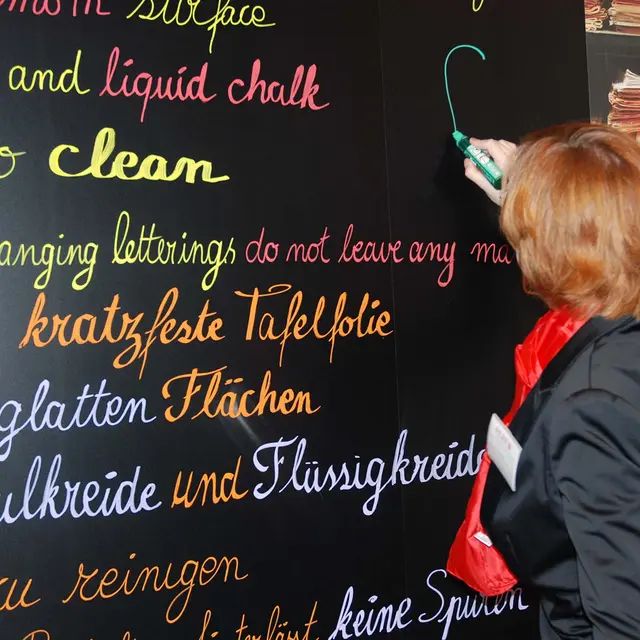 surface
and liquid chalk
clean
anging letterings do not leave any ma
kratzfeste Tafelfolie
glatten Flächen
ulkreide und Flüssigkreide
zu reinigen
hinterlässt keine Spuren